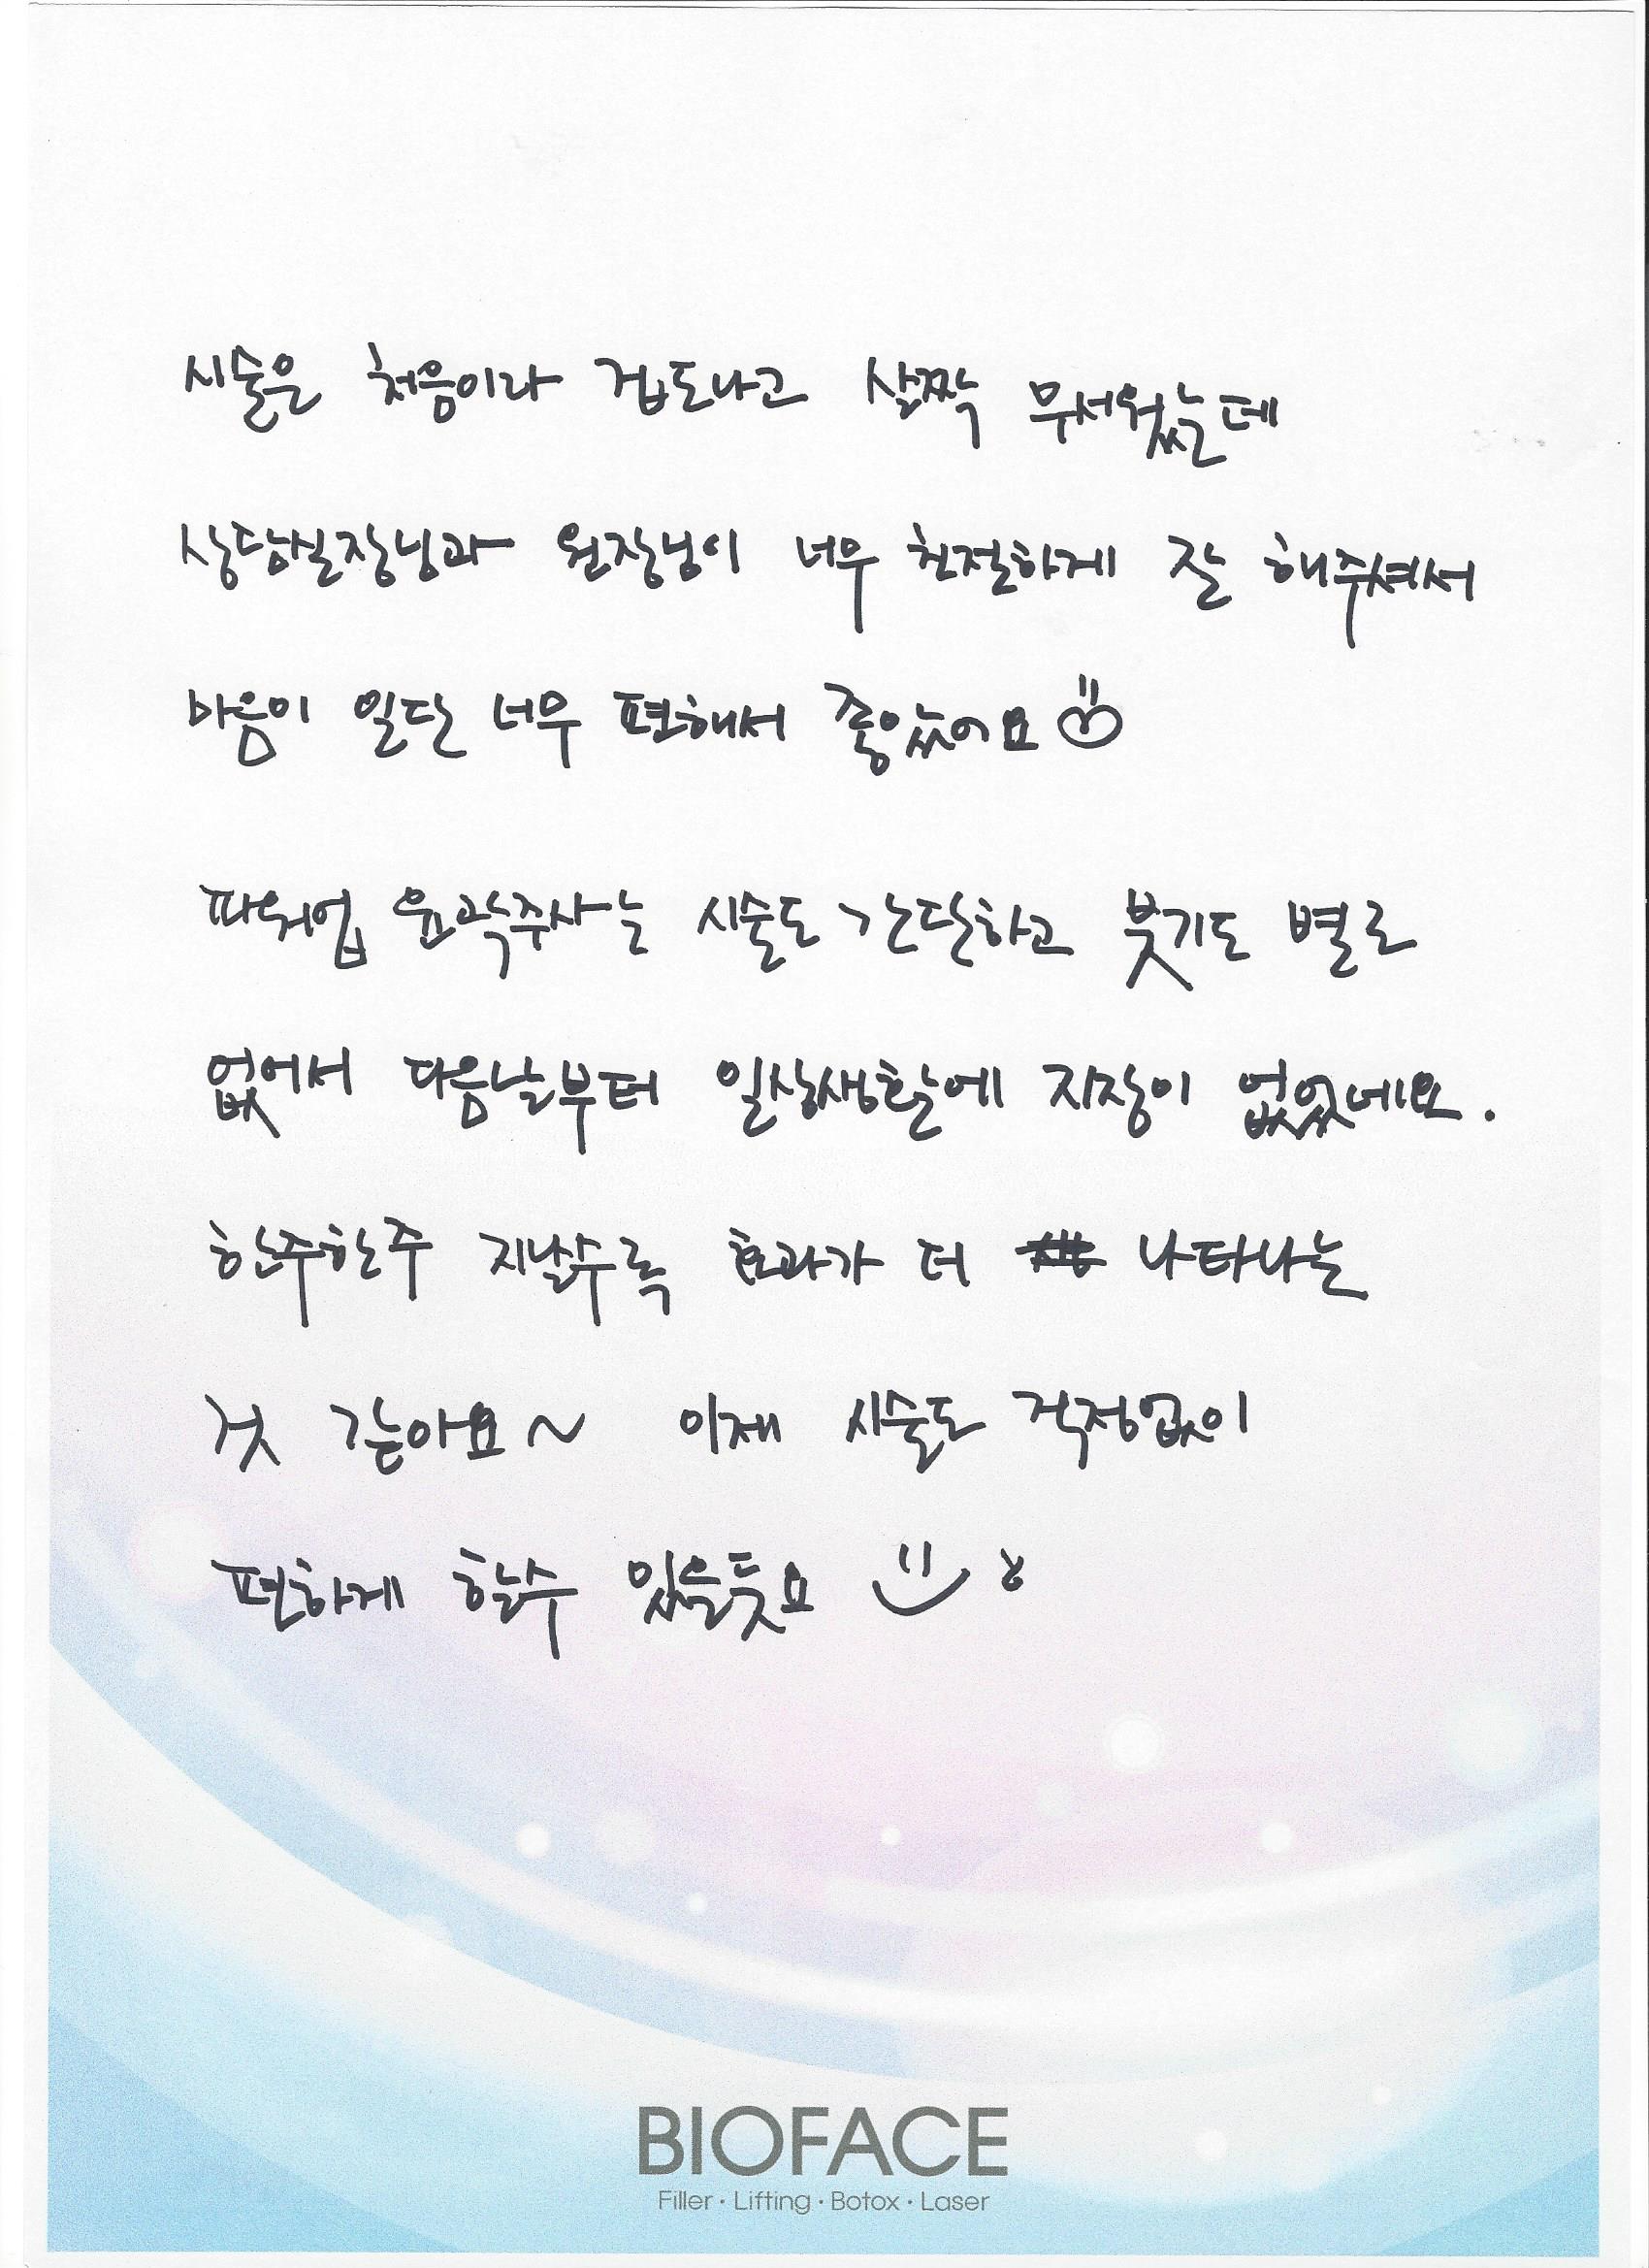 시술은 처음이라 겁도나고 살짝 무서웠는데
상담실장님과 원장님이 너무 친절하게 잘 해주셔서
마음이 일단 너무 편해서 좋았어요
파워업 윤곽주사는 시술도 간단하고 붓기도 별로
없어서 다음날부터 일상생활에 지장이 없었네요.
한주한주 지날수록 효과가 더 나타나는
것 같아요~ 이제 시술도 걱정없이
편하게 할수 있을듯요
BIOFACE
Filler · Lifting · Botox · Laser